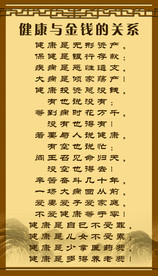 健康与金钱的关系
健康是无形资产,
保健是银行存款;
疾病是恶性透支,
大病是倾家荡产;
健康投资没钱,
没有也犹没有;
等到病时花万千,
没有也得有!
若要与人忧健康,
有空也犹没空;
阎王召见命归天,
没空也得有空!
辛苦奋斗几十年,
一场大病回从前,
爱妻爱子爱家庭,
不爱健康等于零!
健康是自己不受罪
健康是儿女不受累
健康是少拿医药费